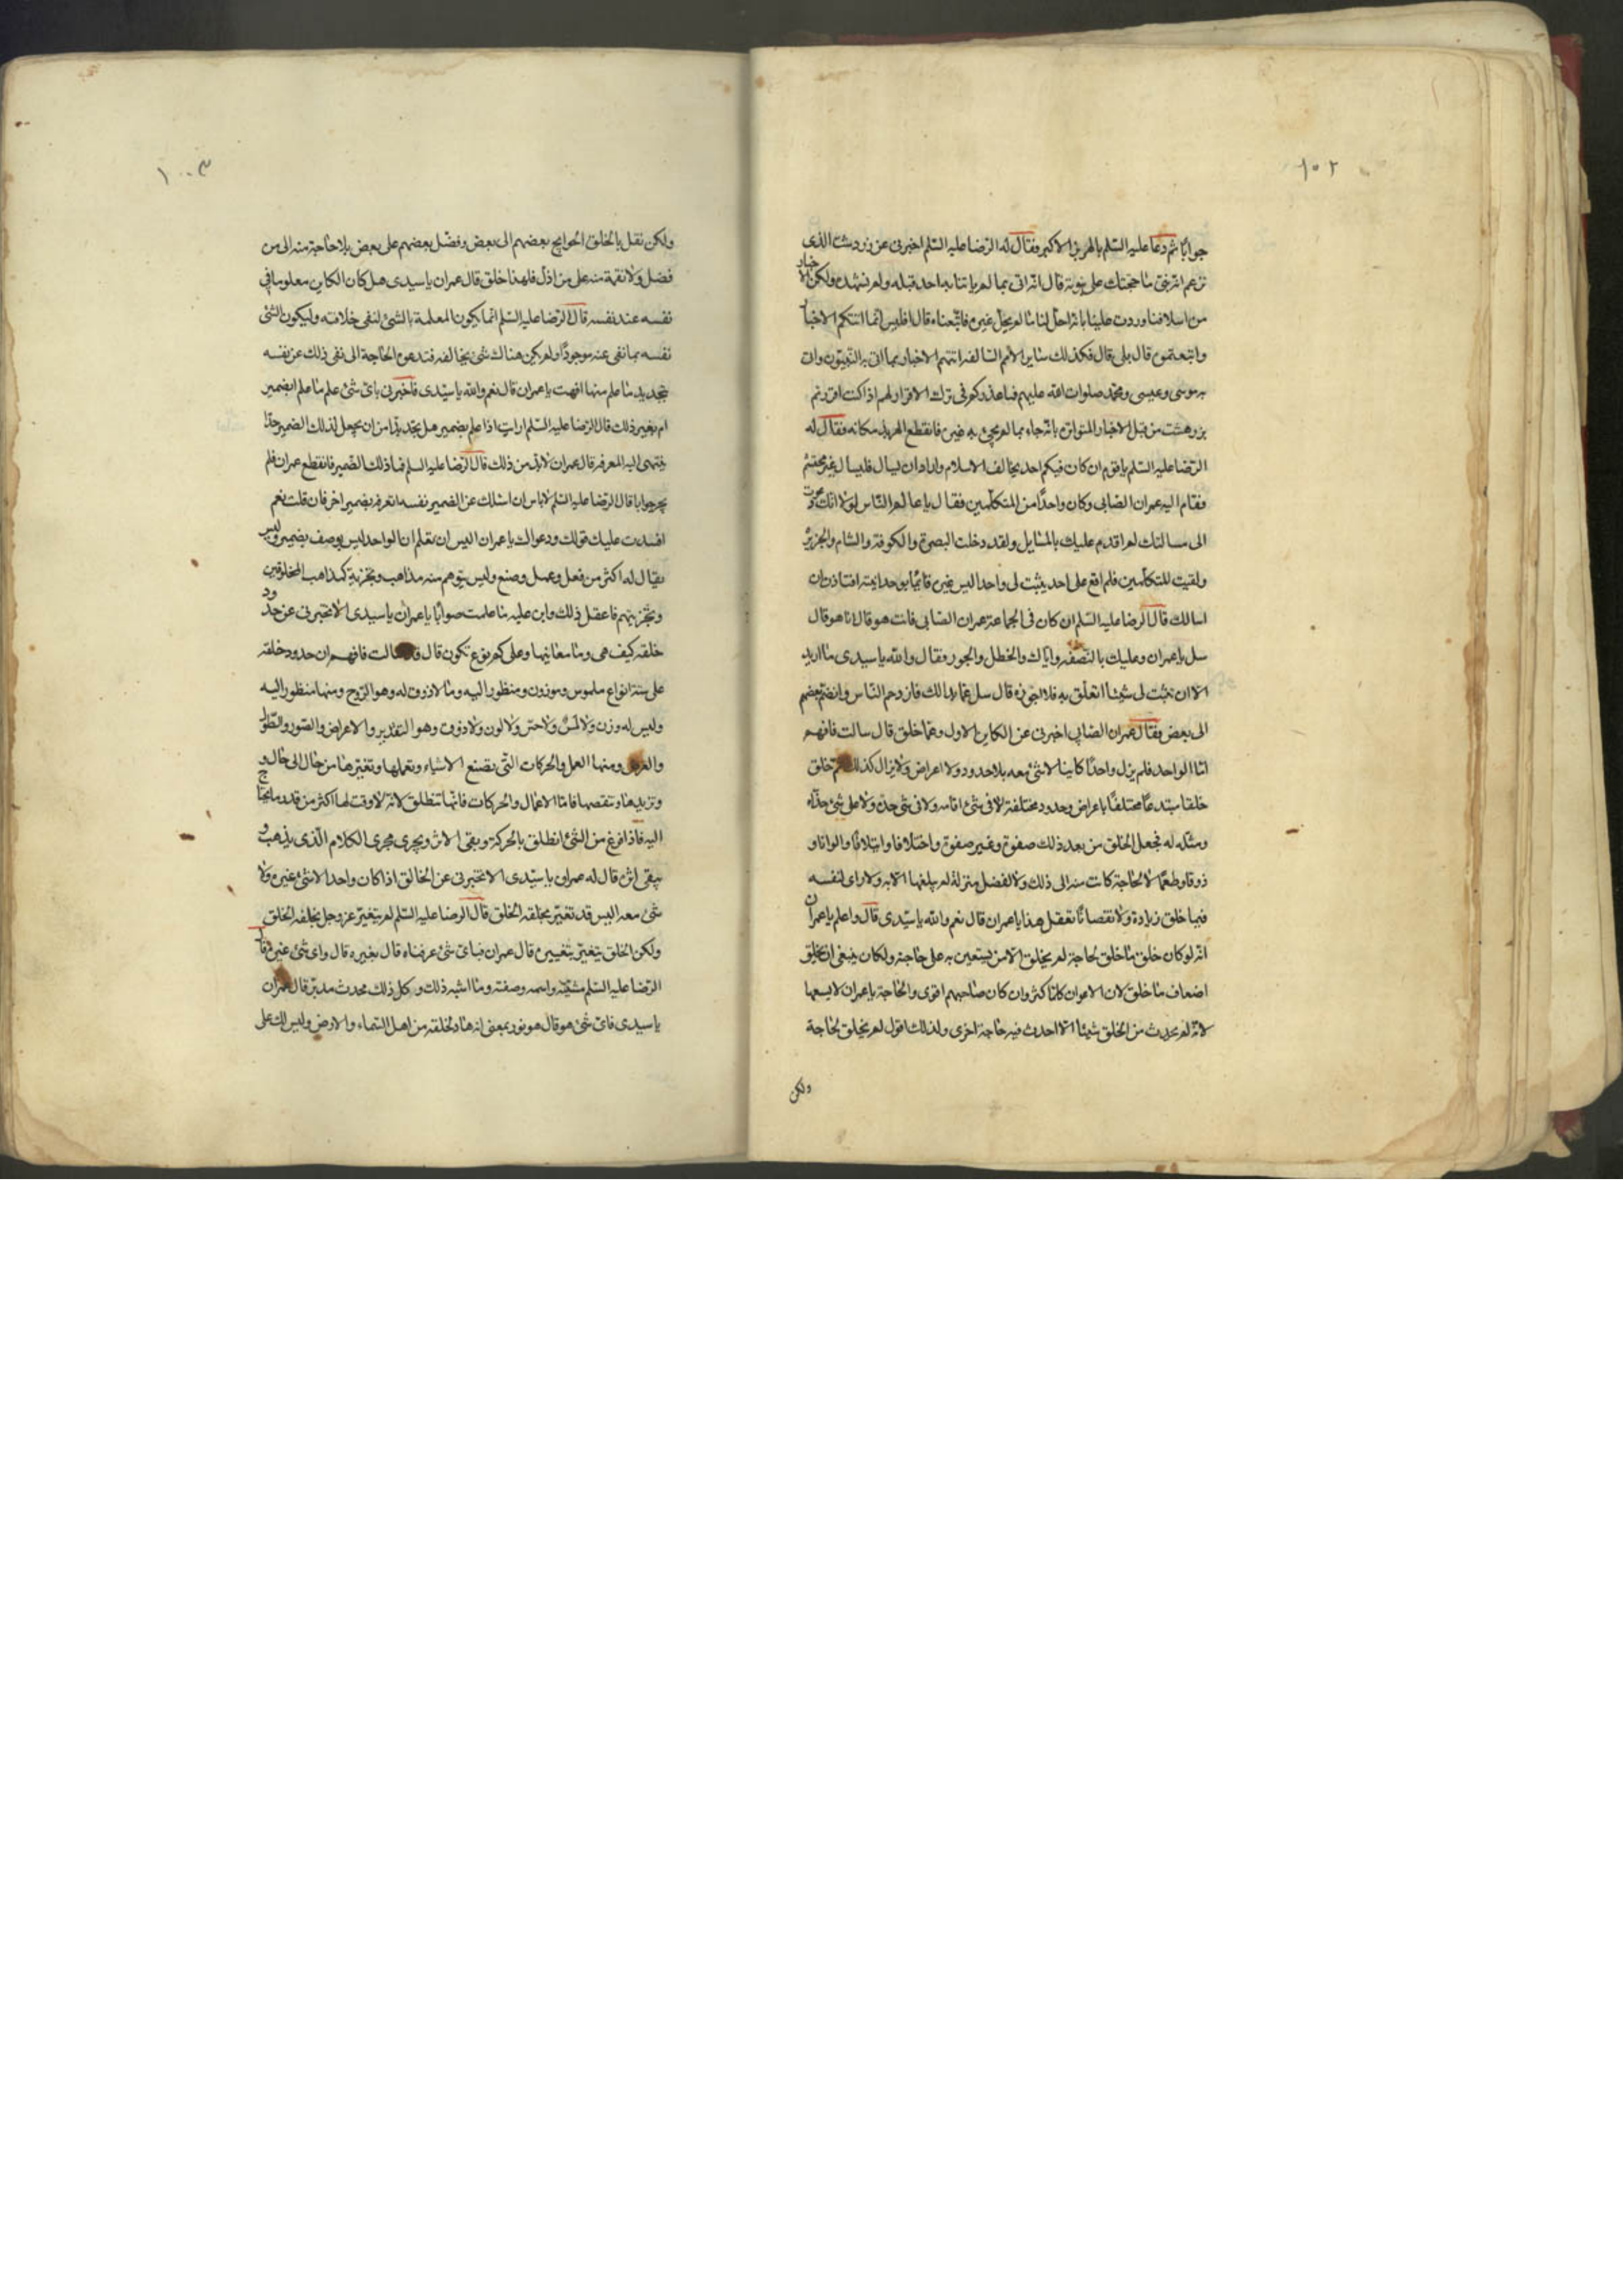 ١٠٢
جوابا ثم دعا عليه السلم بالهربذ الاكبر فقال له الرضا عليه السلم اخبرني عن زردشت الذي
تزعم انه نبي ما حجتك على نبوته قال انه اتى بما لم ياتنا به احد قبله ولم نشهده ولكن الاخبار
من اسلافنا وردت علينا بانه احل لنا ما لم يحل غيره فاتبعناه قال افليس انما اتتكم الاخبار
واتبعتموه قال بلى قال فكذلك سائر الامم السالفة اتتهم الاخبار بما اتى به النبيون واتى
به موسى وعيسى ومحمد صلوات الله عليهم فما عذركم في ترك الاقرار لهم اذ اكنت اقررتم
بزردهشت من قبل الاخبار المتواترة بانه جاء بما لم يجئ به غيره فانقطع الهربذ مكانه فقال له
الرضا عليه السلم يا قوم ان كان فيكم احد يخالف الاسلام واراد ان يسال فليسال غير محتشم
فقام اليه عمران الصابي وكان واحدا من المتكلمين فقال يا عالم الناس لولا انك دعوت
الى مسالتك لم اقدم عليك بالمسايل ولقد دخلت البصرة والكوفة والشام والجزيرة
ولقيت المتكلمين فلم اقع على احد يثبت لي واحدا ليس غيره قائما بوحدانيته افتاذن ان
اسالك قال الرضا عليه السلم ان كان في الجماعة عمران الصابي فانت هو قال انا هو قال
سل يا عمران وعليك بالنصفة واياك والخطل والجور فقال والله يا سيدي ما اريد
الا ان تثبت لي شيئا اتعلق به فلا اجوزه قال سل عما بدا لك فازدحم الناس وانضم بعضهم
الى بعض فقال عمران الصابي اخبرني عن الكاين الاول وعما خلق قال سالت فافهم
اما الواحد فلم يزل واحدا كاينا لا شئ معه بلا حدود ولا اعراض ولا يزال كذلك ثم خلق
خلقا مبتدعا مختلفا باعراض وحدود مختلفة لا في شئ اقامه ولا في شئ حده ولا على شئ حذاه
ومثله له فجعل الخلق من بعد ذلك صفوة وغير صفوة واختلافا وايتلافا والوانا و
ذوقا وطعما لا لحاجة كانت منه الى ذلك ولا لفضل منزلة لم يبلغها الا به ولا راى لنفسه
فيما خلق زيادة ولا نقصانا تعقل هذا يا عمران قال نعم والله يا سيدي قال واعلم يا عمران
انه لو كان خلق ما خلق لحاجة لم يخلق الا من يستعين به على حاجته ولكان ينبغي ان يخلق
اضعاف ما خلق لان الاعوان كلما كثروا كان صاحبهم اقوى والحاجة يا عمران لا يسعها
لانه لم يحدث من الخلق شيئا الا احدث فيه حاجة اخرى ولذلك اقول لم يخلق لحاجة
ولكن
١٠٣
ولكن نقل بالخلق الحوايج بعضهم الى بعض وفضل بعضهم على بعض بلا حاجة منه الى من
فضل ولا نقمة منه على من اذل فلهذا خلق قال عمران يا سيدي هل كان الكاين معلوما في
نفسه عند نفسه قال الرضا عليه السلم انما يكون المعلمة بالشئ لنفي خلافه وليكون الشئ
نفسه بما نفي عنه موجودا ولم يكن هناك شئ يخالفه فتدعوه الحاجة الى نفي ذلك عن نفسه
بتحديد ما علم منها افهمت يا عمران قال نعم والله يا سيدي فاخبرني باي شئ علم ما علم ابضمير
ام بغير ذلك قال الرضا عليه السلم ارايت اذا علم بضمير هل يجد بدا من ان يجعل لذلك الضمير حدا
ينتهي اليه المعرفة قال عمران لا بد من ذلك قال الرضا عليه السلم فما ذلك الضمير فانقطع عمران فلم
يحر جوابا قال الرضا عليه السلم لا باس ان اسئلك عن الضمير نفسه اتعرفه بضمير اخر فان قلت نعم
افسدت عليك قولك ودعواك يا عمران اليس ان تعلم ان الواحد ليس يوصف بضمير وليس
يقال له اكثر من فعل وعمل وصنع وليس يتوهم منه مذاهب وتجزية كمذاهب المخلوقين
وتجزيتهم فاعقل ذلك وابن عليه ما علمت صوابا يا عمران يا سيدي الا تخبرني عن حدود
خلقه كيف هي وما معانيها وعلى كم نوع تكون قال قد سالت فافهم ان حدود خلقه
على ستة انواع ملموس وموزون ومنظور اليه وما لا ذوق له وهو الروح ومنها منظور اليه
وليس له وزن ولا لمس ولا حس ولا لون ولا ذوق وهو التقدير والاعراض والصور والطول
والعرض ومنها العمل والحركات التي تصنع الاشياء وتعملها وتغيرها من حال الى حال و
وتزيدها وتنقصها فاما الاعمال والحركات فانها تنطلق لانه لا وقت لها اكثر من قدر ما يحتاج
اليه فاذا فرغ من الشئ انطلق بالحركة وبقي الاثر ويجري مجرى الكلام الذي يذهب و
يبقى اثره قال له عمران يا سيدي الا تخبرني عن الخالق اذا كان واحدا لا شئ غيره ولا
شئ معه اليس قد تغير بخلقه الخلق قال الرضا عليه السلم لم يتغير عز وجل بخلقه الخلق
ولكن الخلق يتغير بتغييره قال عمران فباي شئ عرفناه قال بغيره قال واي شئ غيره قال
الرضا عليه السلم مشيته واسمه وصفته وما اشبه ذلك وكل ذلك محدث مدبر قال عمران
يا سيدي فاي شئ هو قال هو نور بمعنى انه هاد لخلقه من اهل السماء والارض وليس لك على